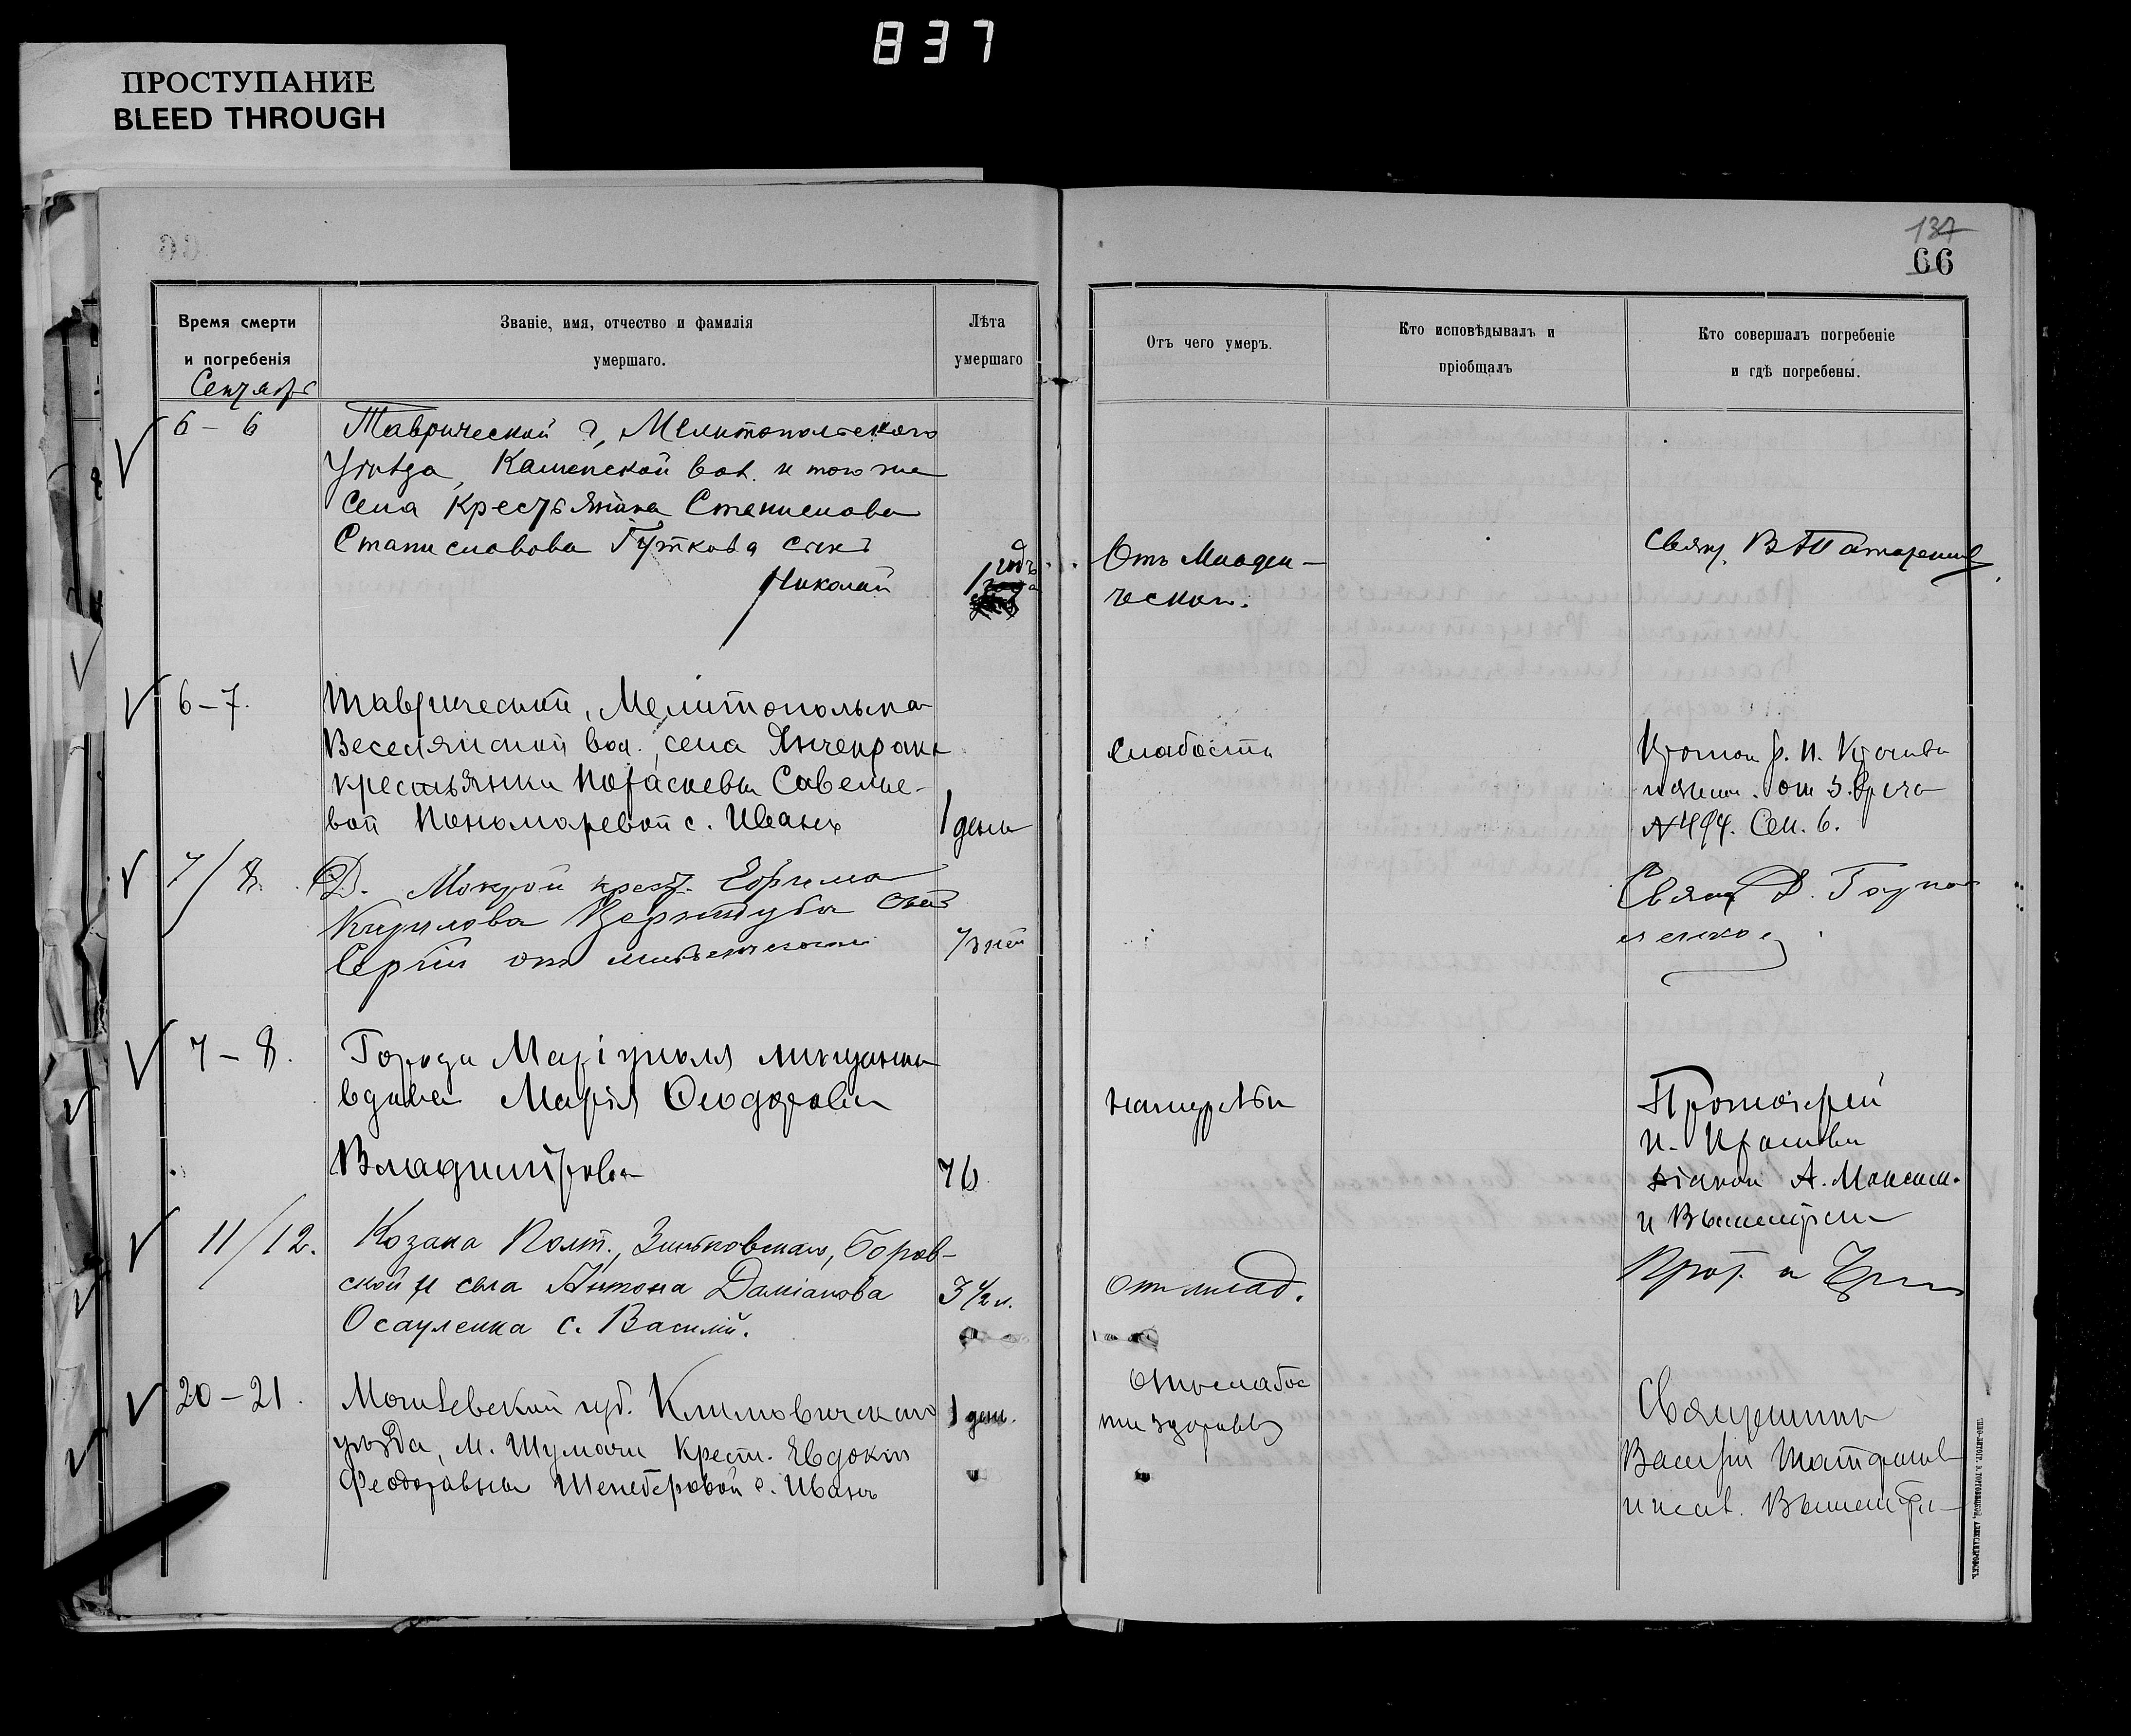 837
ПРОСТУПАНИЕ
BLEED THROUGH
137
66
Время смерти
и погребенія
Званіе, имя, отчество и фамилія
умершаго.
Лѣта
умершаго
Отъ чего умеръ.
Кто исповѣдывалъ и
пріобщалъ
Кто совершалъ погребеніе
и гдѣ погребены.
6 – 6
Таврической г., Мелитопольскаго
Уѣзда, Каменской вол. и того же
села Крестьянина Станислава
Станиславова Гуткова сынъ
Николай
1 годъ
Отъ младен-
ческой.
Свящ. В.
6 – 7.
Таврической, Мелитопольска
Веселянской вол., села Янчекрака
крестьянки Параскевы Савелье-
вой Пономаревой с. Иванъ
1 день
Слабости
№ 494. Сен. 6.
7/8.
Д. Мокрой крест. Ефрема
Кирилова сынъ
Сергій отъ
7 дней
Свящ. Д.
7 – 8.
Города Маріуполя мѣщанка
вдова Марія Ѳеодорова
Владимірова
76
Протоіерей
И.
діакон А. Максим.
и
11/12.
Козака Полт., Зиньковскаго, Боров-
ской и села Антона Даміанова
Осауленка с. Василій.
3 1/2 л.
От млад.
Прот.
20 – 21.
Могилевской губ. Климовичскаго
уѣзда, м. Шумячи Крест. Евдокіи
Феодоровны с. Иванъ
1 день.
От слабос
ти здоровья
Священникъ
Василій